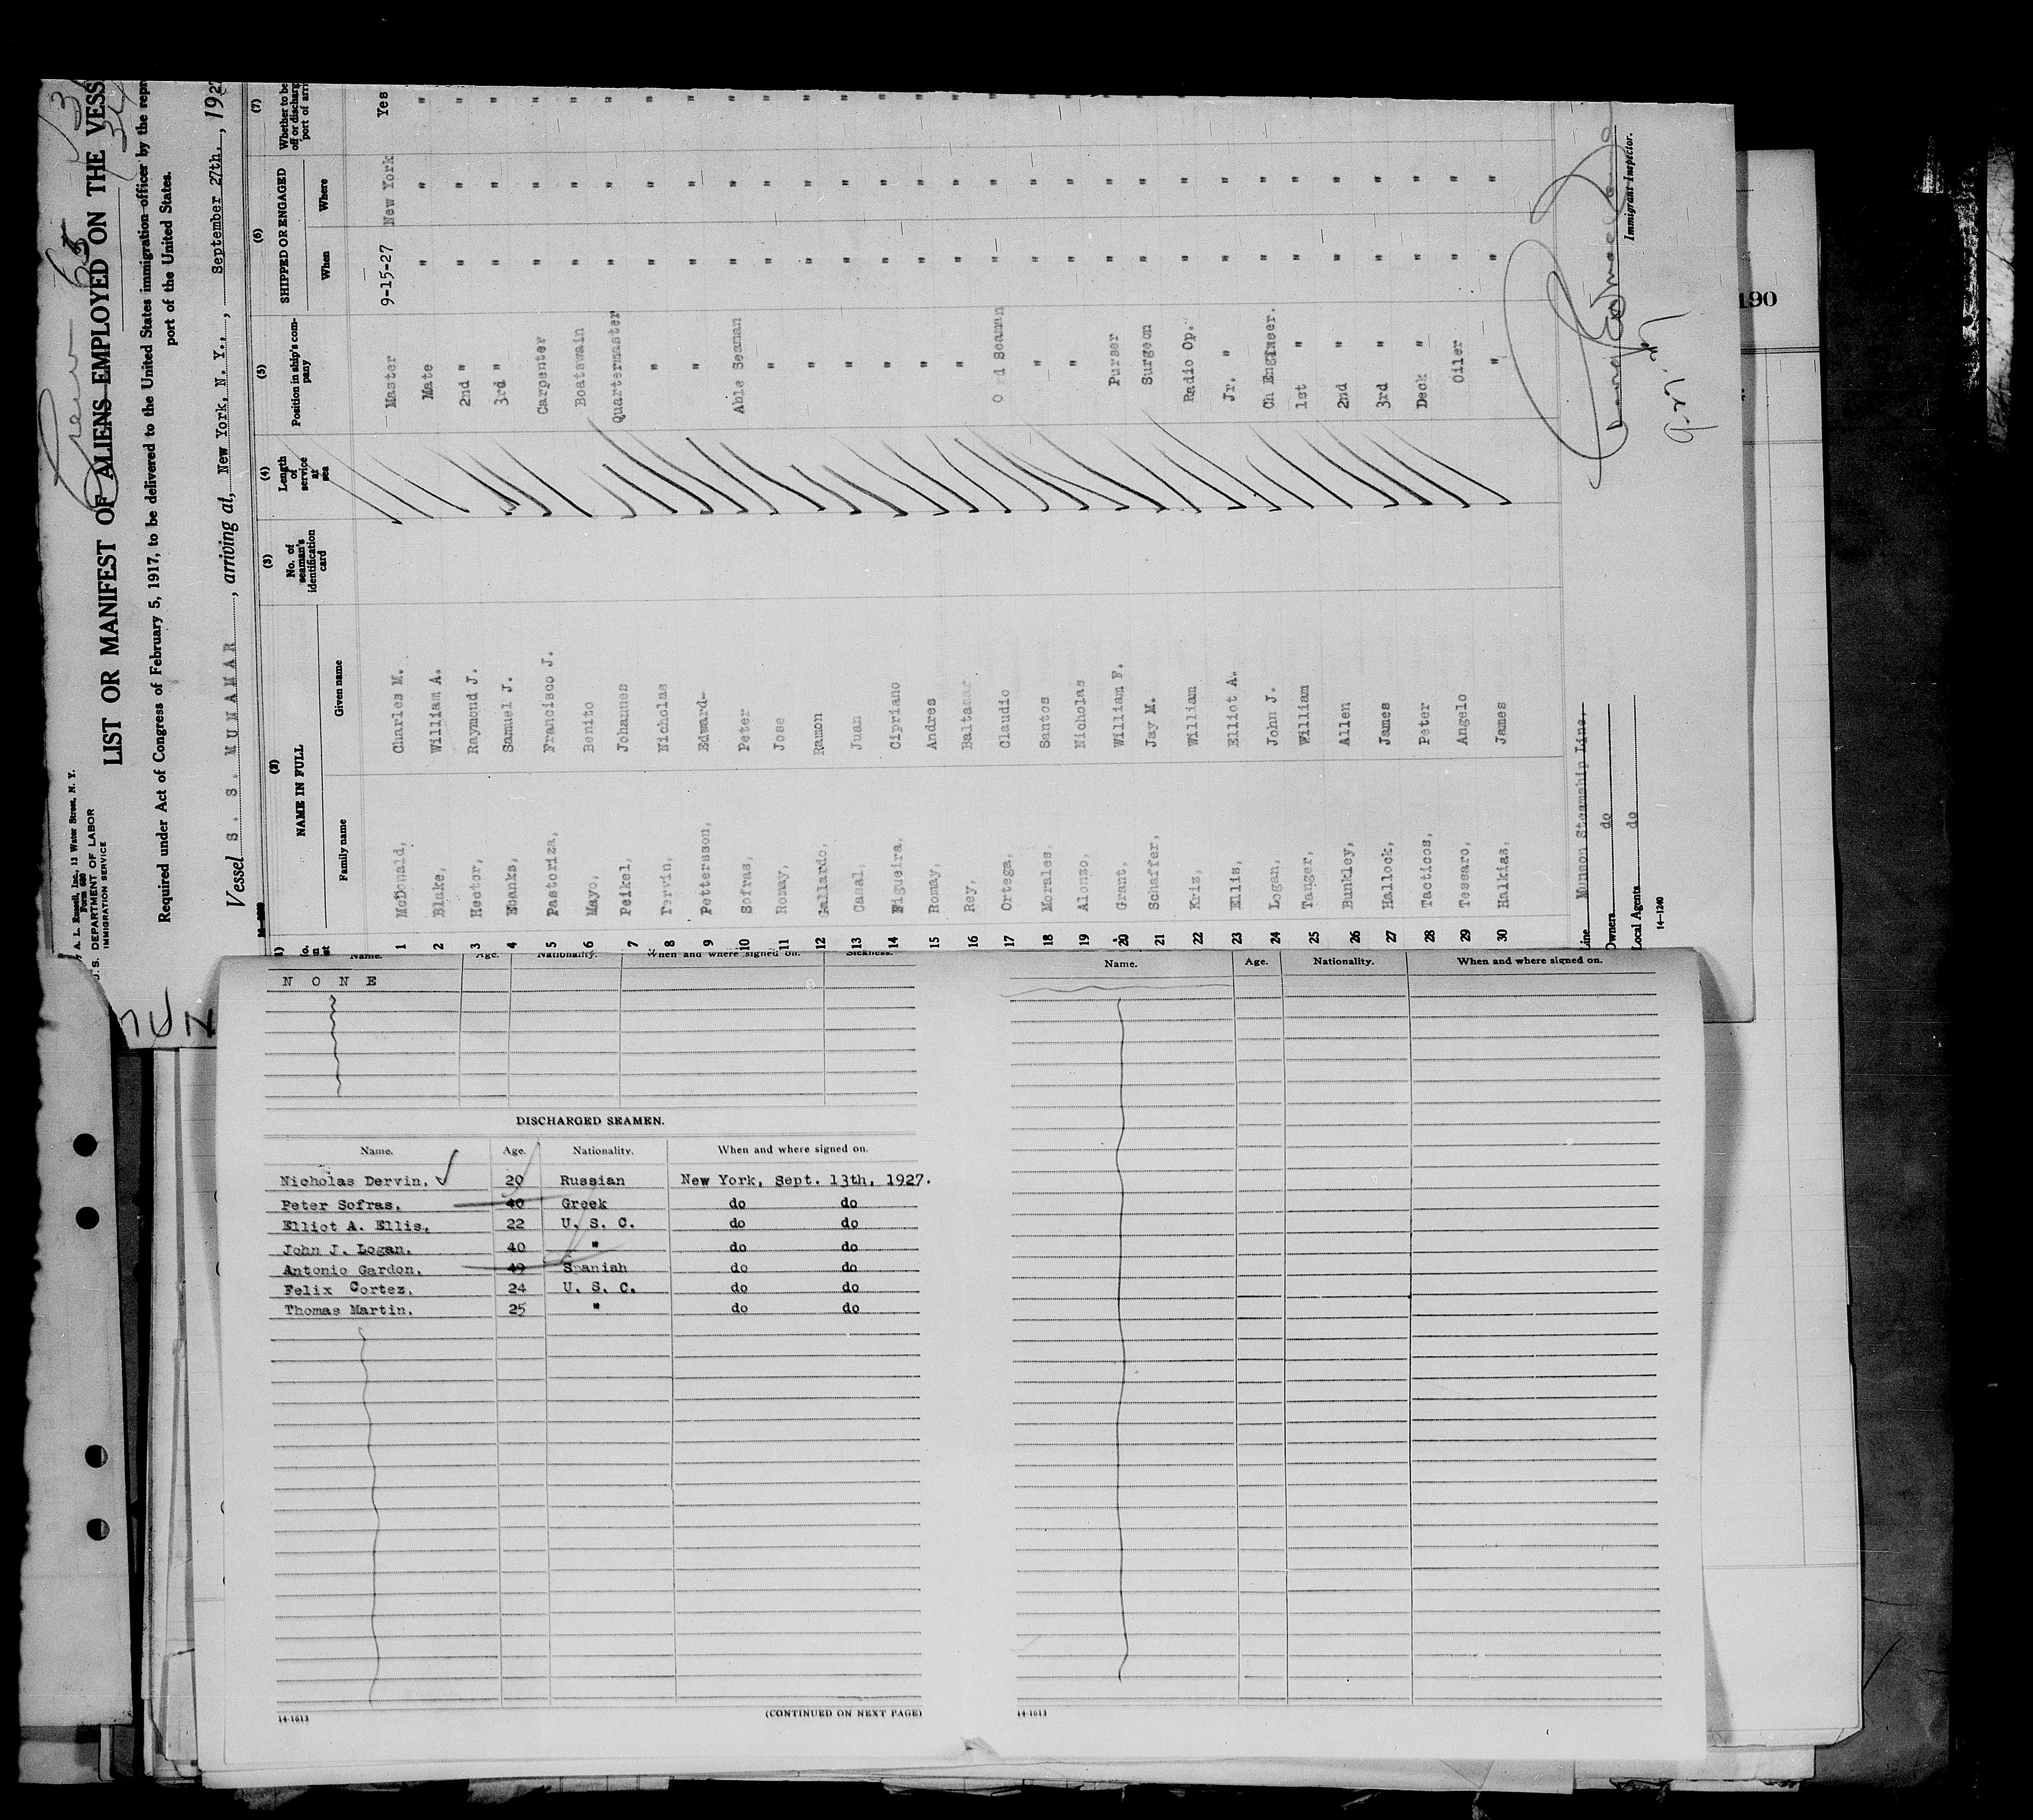 Crew 65
A. L. Russell, Inc., 13 Water Street, N. Y.
Form 680
U. S. DEPARTMENT OF LABOR
IMMIGRATION SERVICE
LIST OR MANIFEST OF ALIENS EMPLOYED ON THE VESS
Required under Act of Congress of February 5, 1917, to be delivered to the United States immigration officer by the repr
port of the United States.
Vessel S. S. MUNAMAR, arriving at, New York, N. Y., September 27th., 192
(2) (3) (4) (5) (6) (7)
NAME IN FULL No. of seaman's identification card Length of service at sea Position in ship's company SHIPPED OR ENGAGED Whether to be off or discharg port of arri
Family name Given name When Where
1 McDonald, Charles M. Master 9-15-27 New York Yes
2 Blake, William A. Mate " " "
3 Hector, Raymond J. 2nd " " " "
4 Ebanks, Samuel J. 3rd " " " "
5 Pastoriza, Francisco J. Carpenter " " "
6 Mayo, Benito Boatswain " " "
7 Peikel, Johannes Quartermaster " " "
8 Dervin, Nicholas " " " "
9 Pettersson, Edward- " " " "
10 Sofras, Peter Able Seaman " " "
11 Romay, Jose " " " "
12 Gallardo, Ramon " " " "
13 Casal, Juan " " " "
14 Figueira, Cipriano " " " "
15 Romay, Andres " " " "
16 Rey, Baltasar " " " "
17 Ortega, Claudio O rd Seaman " " "
18 Morales, Santos " " " "
19 Alonzo, Nicholas " " " "
20 Grant, William F. Purser " " "
21 Schaffer, Jay M. Surgeon " " "
22 Kriz, William Radio Op. " " "
23 Ellis, Elliot A. Jr. " " " "
24 Logan, John J. Ch Engineer. " " "
25 Tanger, William 1st " " " "
26 Bunkley, Allen 2nd " " " "
27 Hallock, James 3rd " " " "
28 Tacticos, Peter Deck " " " "
29 Tessaro, Angelo Oiler " " "
30 Halkias, James " " " "
Line Munson Steamship Line,
Owners do
Local Agents do
Immigrant Inspector.
14-1240
190
MUN
Name. Age. Nationality. When and where signed on. Sickness.
N O N E
DISCHARGED SEAMEN.
Name. Age. Nationality. When and where signed on.
Nicholas Dervin, 20 Russian New York, Sept. 13th, 1927.
Peter Sofras, 40 Greek do do
Elliot A. Ellis, 22 U. S. C. do do
John J. Logan, 40 " do do
Antonio Gardon, 49 Spanish do do
Felix Cortez, 24 U. S. C. do do
Thomas Martin, 25 " do do
14-1613 (CONTINUED ON NEXT PAGE)
Name. Age. Nationality. When and where signed on.
14-1613